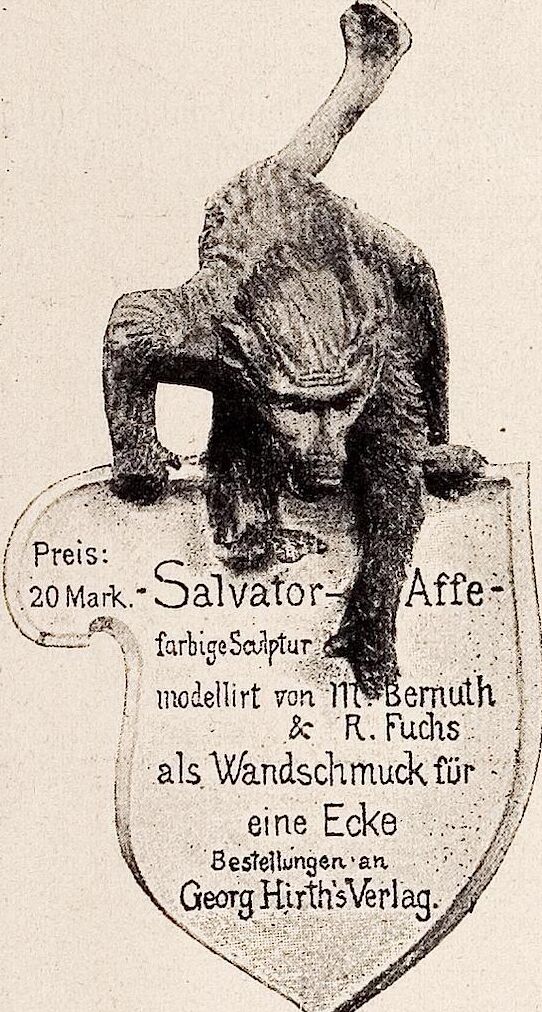 Preis:
20 Mark. - Salvator - Affe -
farbige Sculptur
modellirt von M. Bernuth
& R. Fuchs
als Wandschmuck für
eine Ecke
Bestellungen an
Georg Hirth's Verlag.